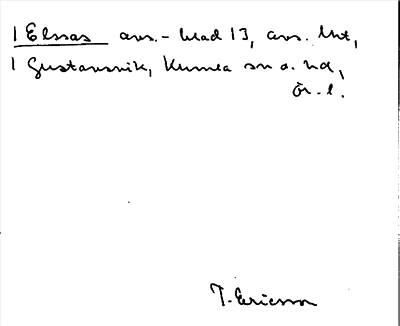 1 Elsas avs.-blad 13, avs. Unt,
1 Gustavsvik, Kumla sn o. hd,
Ör. l.
T. Ericsson